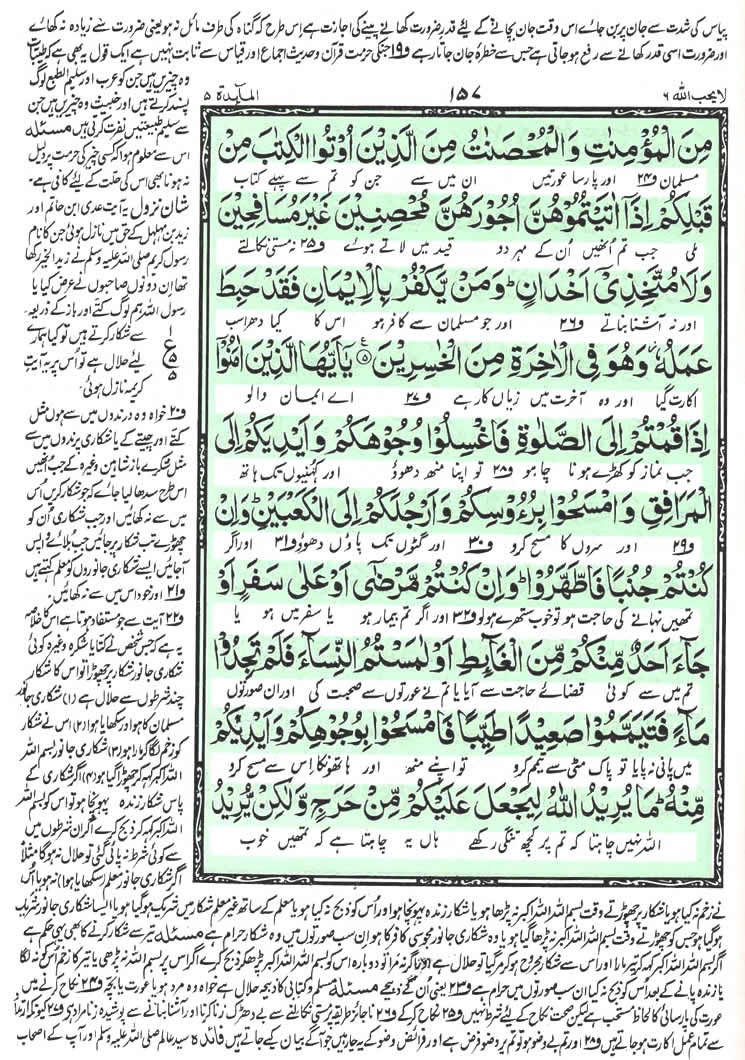 پیاس کی شدت سے جان پر بن جائے اس وقت جان بچانے کے لئے قدر ضرورت کھانے پینے کی اجازت ہے اس طرح کہ گناہ کی طرف مائل نہ ہو یعنی ضرورت سے زیادہ نہ کھائے
اور ضرورت اسی قدر کھانے سے رفع ہو جاتی ہے جس سے خطرہ جان جاتا رہے و۱۹ جنکی حرمت قرآن و حدیث اجماع اور قیاس سے ثابت نہیں ہے ایک قول یہ بھی ہے کہ طیبات
لایحب الله ۶
۱۵۷
المآیدة ۵
مِنَ الْمُؤْمِنٰتِ وَالْمُحْصَنٰتُ مِنَ الَّذِیْنَ اُوْتُوا الْكِتٰبَ مِنْ
مسلمان و۲۴ اور پارسا عورتیں ان میں سے جن کو تم سے پہلے کتاب
قَبْلِكُمْ اِذَاۤ اٰتَیْتُمُوْهُنَّ اُجُوْرَهُنَّ مُحْصِنِیْنَ غَیْرَ مُسٰفِحِیْنَ
ملی جب تم انھیں اُن کے مہر دو قید میں لاتے ہوئے و۲۵ نہ مستی نکالتے
وَلَا مُتَّخِذِیْۤ اَخْدَانٍ ؕ وَمَنْ یَّكْفُرْ بِالْاِیْمَانِ فَقَدْ حَبِطَ
اور نہ آشنا بناتے و۲۶ اور جو مسلمان سے کافر ہو اس کا کیا دھرا سب
عَمَلُهٗ ؗ وَهُوَ فِی الْاٰخِرَةِ مِنَ الْخٰسِرِیْنَ ۵ یٰۤاَیُّهَا الَّذِیْنَ اٰمَنُوْۤا
اکارت گیا اور وہ آخرت میں زیاں کار ہے و۲۷ اے ایمان والو
اِذَا قُمْتُمْ اِلَی الصَّلٰوةِ فَاغْسِلُوْا وُجُوْهَكُمْ وَاَیْدِیَكُمْ اِلَی
جب نماز کو کھڑے ہونا چاہو و۲۸ تو اپنا منھ دھوؤ اور کہنیوں تک ہاتھ
الْمَرَافِقِ وَامْسَحُوْا بِرُءُوْسِكُمْ وَاَرْجُلَكُمْ اِلَی الْكَعْبَیْنِ ؕ وَاِنْ
و۲۹ اور سروں کا مسح کرو و۳۰ اور گٹوں تک پاؤں دھوؤ و۳۱ اور اگر
كُنْتُمْ جُنُبًا فَاطَّهَّرُوْا ؕ وَاِنْ كُنْتُمْ مَّرْضٰۤی اَوْ عَلٰی سَفَرٍ اَوْ
تمھیں نہانے کی حاجت ہو تو خوب ستھرے ہولو و۳۲ اور اگر تم بیمار ہو یا سفر میں ہو یا
جَآءَ اَحَدٌ مِّنْكُمْ مِّنَ الْغَآىِٕطِ اَوْ لٰمَسْتُمُ النِّسَآءَ فَلَمْ تَجِدُوْا
تم میں سے کوئی قضائے حاجت سے آیا یا تم نے عورتوں سے صحبت کی اور ان صورتوں
مَآءً فَتَیَمَّمُوْا صَعِیْدًا طَیِّبًا فَامْسَحُوْا بِوُجُوْهِكُمْ وَاَیْدِیْكُمْ
میں پانی نہ پایا تو پاک مٹی سے تیمم کرو تو اپنے منھ اور ہاتھوں کا اس سے مسح کرو
مِّنْهُ ؕ مَا یُرِیْدُ اللّٰهُ لِیَجْعَلَ عَلَیْكُمْ مِّنْ حَرَجٍ وَّلٰكِنْ یُّرِیْدُ
اللہ نہیں چاہتا کہ تم پر کچھ تنگی رکھے ہاں یہ چاہتا ہے کہ تمھیں خوب
وہ چیزیں ہیں جن کو عرب اور سلیم الطبع لوگ
پسند کرتے ہیں اور خبیث وہ چیزیں ہیں جن
سے سلیم طبیعتیں نفرت کرتی ہیں مسئلہ
اس سے معلوم ہوا کہ کسی چیز کی حرمت پر دلیل
نہ ہونا بھی اس کی حلت کے لئے کافی ہے۔
شان نزول یہ آیت عدی ابن حاتم اور
زید بن مہلہل کے حق میں نازل ہوئی جن کا نام
رسول کریم صلی اللہ علیہ وسلم نے زید الخیر رکھا
تھا ان دونوں صاحبوں نے عرض کیا یا
رسول اللہ ہم لوگ کتے اور باز کے ذریعہ
سے شکار کرتے ہیں تو کیا ہمارے
لئے حلال ہے تو اس پر یہ آیت
کریمہ نازل ہوئی۔
۱
ع
۵
۵
و۲۰ خواہ وہ درندوں میں سے ہوں مثل
کتے اور چیتے کے یا شکاری پرندوں میں سے
مثل شکرے باز شاہین وغیرہ کے جب انھیں
اس طرح سدھا لیا جائے کہ جو شکار کریں اُس
میں سے نہ کھائیں اور جب شکاری اُن کو
چھوڑے تب شکار پر جائیں جب بلائے واپس
آجائیں ایسے شکاری جانوروں کو معلَّم کہتے ہیں
و۲۱ اور خود اس میں سے نہ کھائیں۔
و۲۲ آیت سے جو مستفاد ہوتا ہے اس کا خلاصہ
یہ ہے کہ جس شخص نے کتا یا شکرہ وغیرہ کوئی
شکاری جانور شکار پر چھوڑا تو اس کا شکار
چند شرطوں سے حلال ہے (۱) شکاری جانور
مسلمان کا ہو اور سکھایا ہوا (۲) اس نے شکار
کو زخم لگا کر مارا ہو (۳) شکاری جانور بسم اللہ
اللہ اکبر کہہ کر چھوڑا گیا ہو (۴) اگر شکاری کے
پاس شکار زندہ پہونچا ہو تو اس کو بسم اللہ
اللہ اکبر کہہ کر ذبح کرے اگر ان شرطوں میں
سے کوئی شرط نہ پائی گئی تو حلال نہ ہوگا مثلاً
اگر شکاری جانور معلم (سکھایا ہوا) نہ ہو یا اُس
نے زخم نہ کیا ہو یا شکار پر چھوڑتے وقت بسم اللہ اللہ اکبر نہ پڑھا ہو یا شکار زندہ پہونچا ہو اور اُس کو ذبح نہ کیا ہو یا معلم کے ساتھ غیر معلم شکار میں شریک ہو گیا ہو یا ایسا شکاری جانور شریک
ہو گیا ہو جس کو چھوڑتے وقت بسم اللہ اللہ اکبر نہ پڑھا گیا ہو یا وہ شکاری جانور مجوسی کافر کا ہو ان سب صورتوں میں وہ شکار حرام ہے مسئلہ تیر سے شکار کرنے کا بھی یہی حکم ہے
اگر بسم اللہ اللہ اکبر کہہ کر تیر مارا اور اس سے شکار مجروح ہو کر مر گیا تو حلال ہے اور اگر نہ مرا تو دوبارہ اس کو بسم اللہ اللہ اکبر پڑھ کر ذبح کرے اگر اس پر بسم اللہ نہ پڑھی یا تیر کا زخم اُس کو نہ لگا
یا زندہ پانے کے بعد اُس کو ذبح نہ کیا ان سب صورتوں میں حرام ہے و۲۳ یعنی اُن کے ذبیحے مسئلہ مسلم و کتابی کا ذبیحہ حلال ہے خواہ وہ مرد ہو یا عورت یا بچہ و۲۴ نکاح کرنے میں
عورت کی پارسائی کا لحاظ مستحب ہے لیکن صحت نکاح کے لئے شرط نہیں و۲۵ نکاح کر کے و۲۶ ناجائز طریقہ پر مستی نکالنے سے بے دھڑک زنا کرنا اور آشنا بنانے سے پوشیدہ زنا مراد ہے و۲۷ کیونکہ ارتداد
سے تمام عمل اکارت ہو جاتے ہیں و۲۸ اور تم بے وضو ہو تو تم پر وضو فرض ہے اور فرائض وضو کے یہ چار ہیں جو آگے بیان کیے جاتے ہیں فائدہ سید عالم صلی اللہ علیہ وسلم اور آپ کے اصحاب